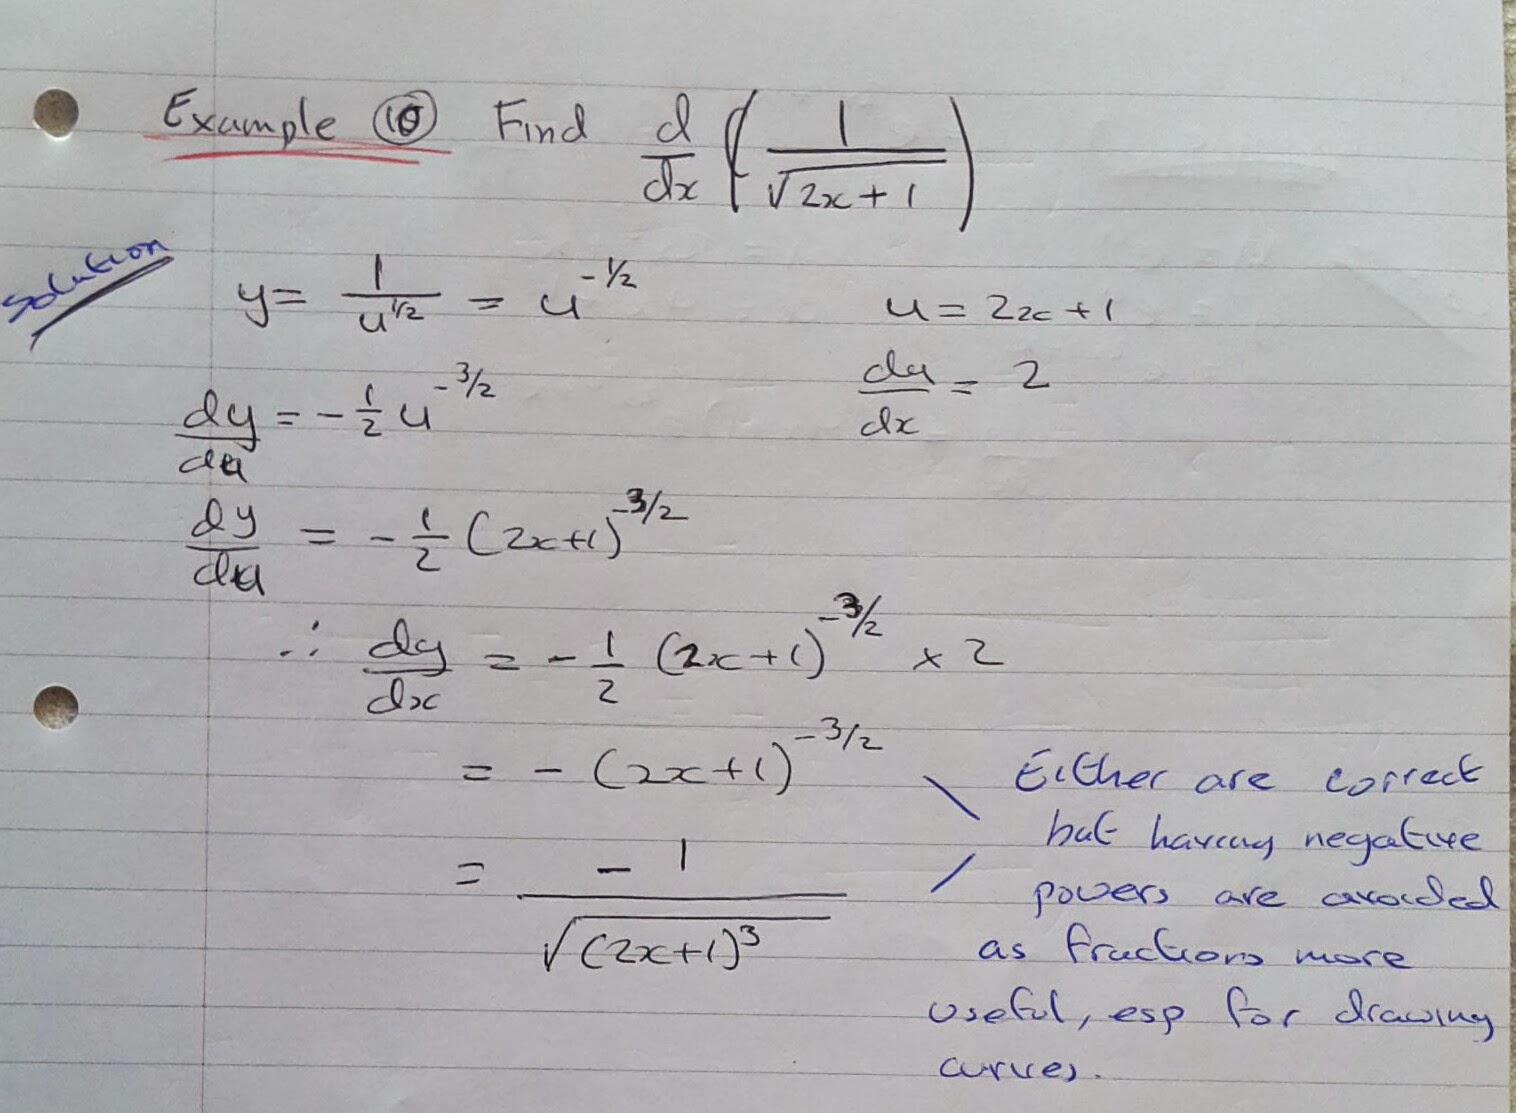 Example ⑩ Find d/dx (1/√(2x+1))
Solution
y = 1/u^(1/2) = u^(-1/2)
u = 2x + 1
dy/du = -1/2 u^(-3/2)
du/dx = 2
dy/du = -1/2 (2x+1)^(-3/2)
∴ dy/dx = -1/2 (2x+1)^(-3/2) × 2
= -(2x+1)^(-3/2)
= -1/√((2x+1)^3)
Either are correct
but having negative
powers are avoided
as fractions more
useful, esp for drawing
curves.